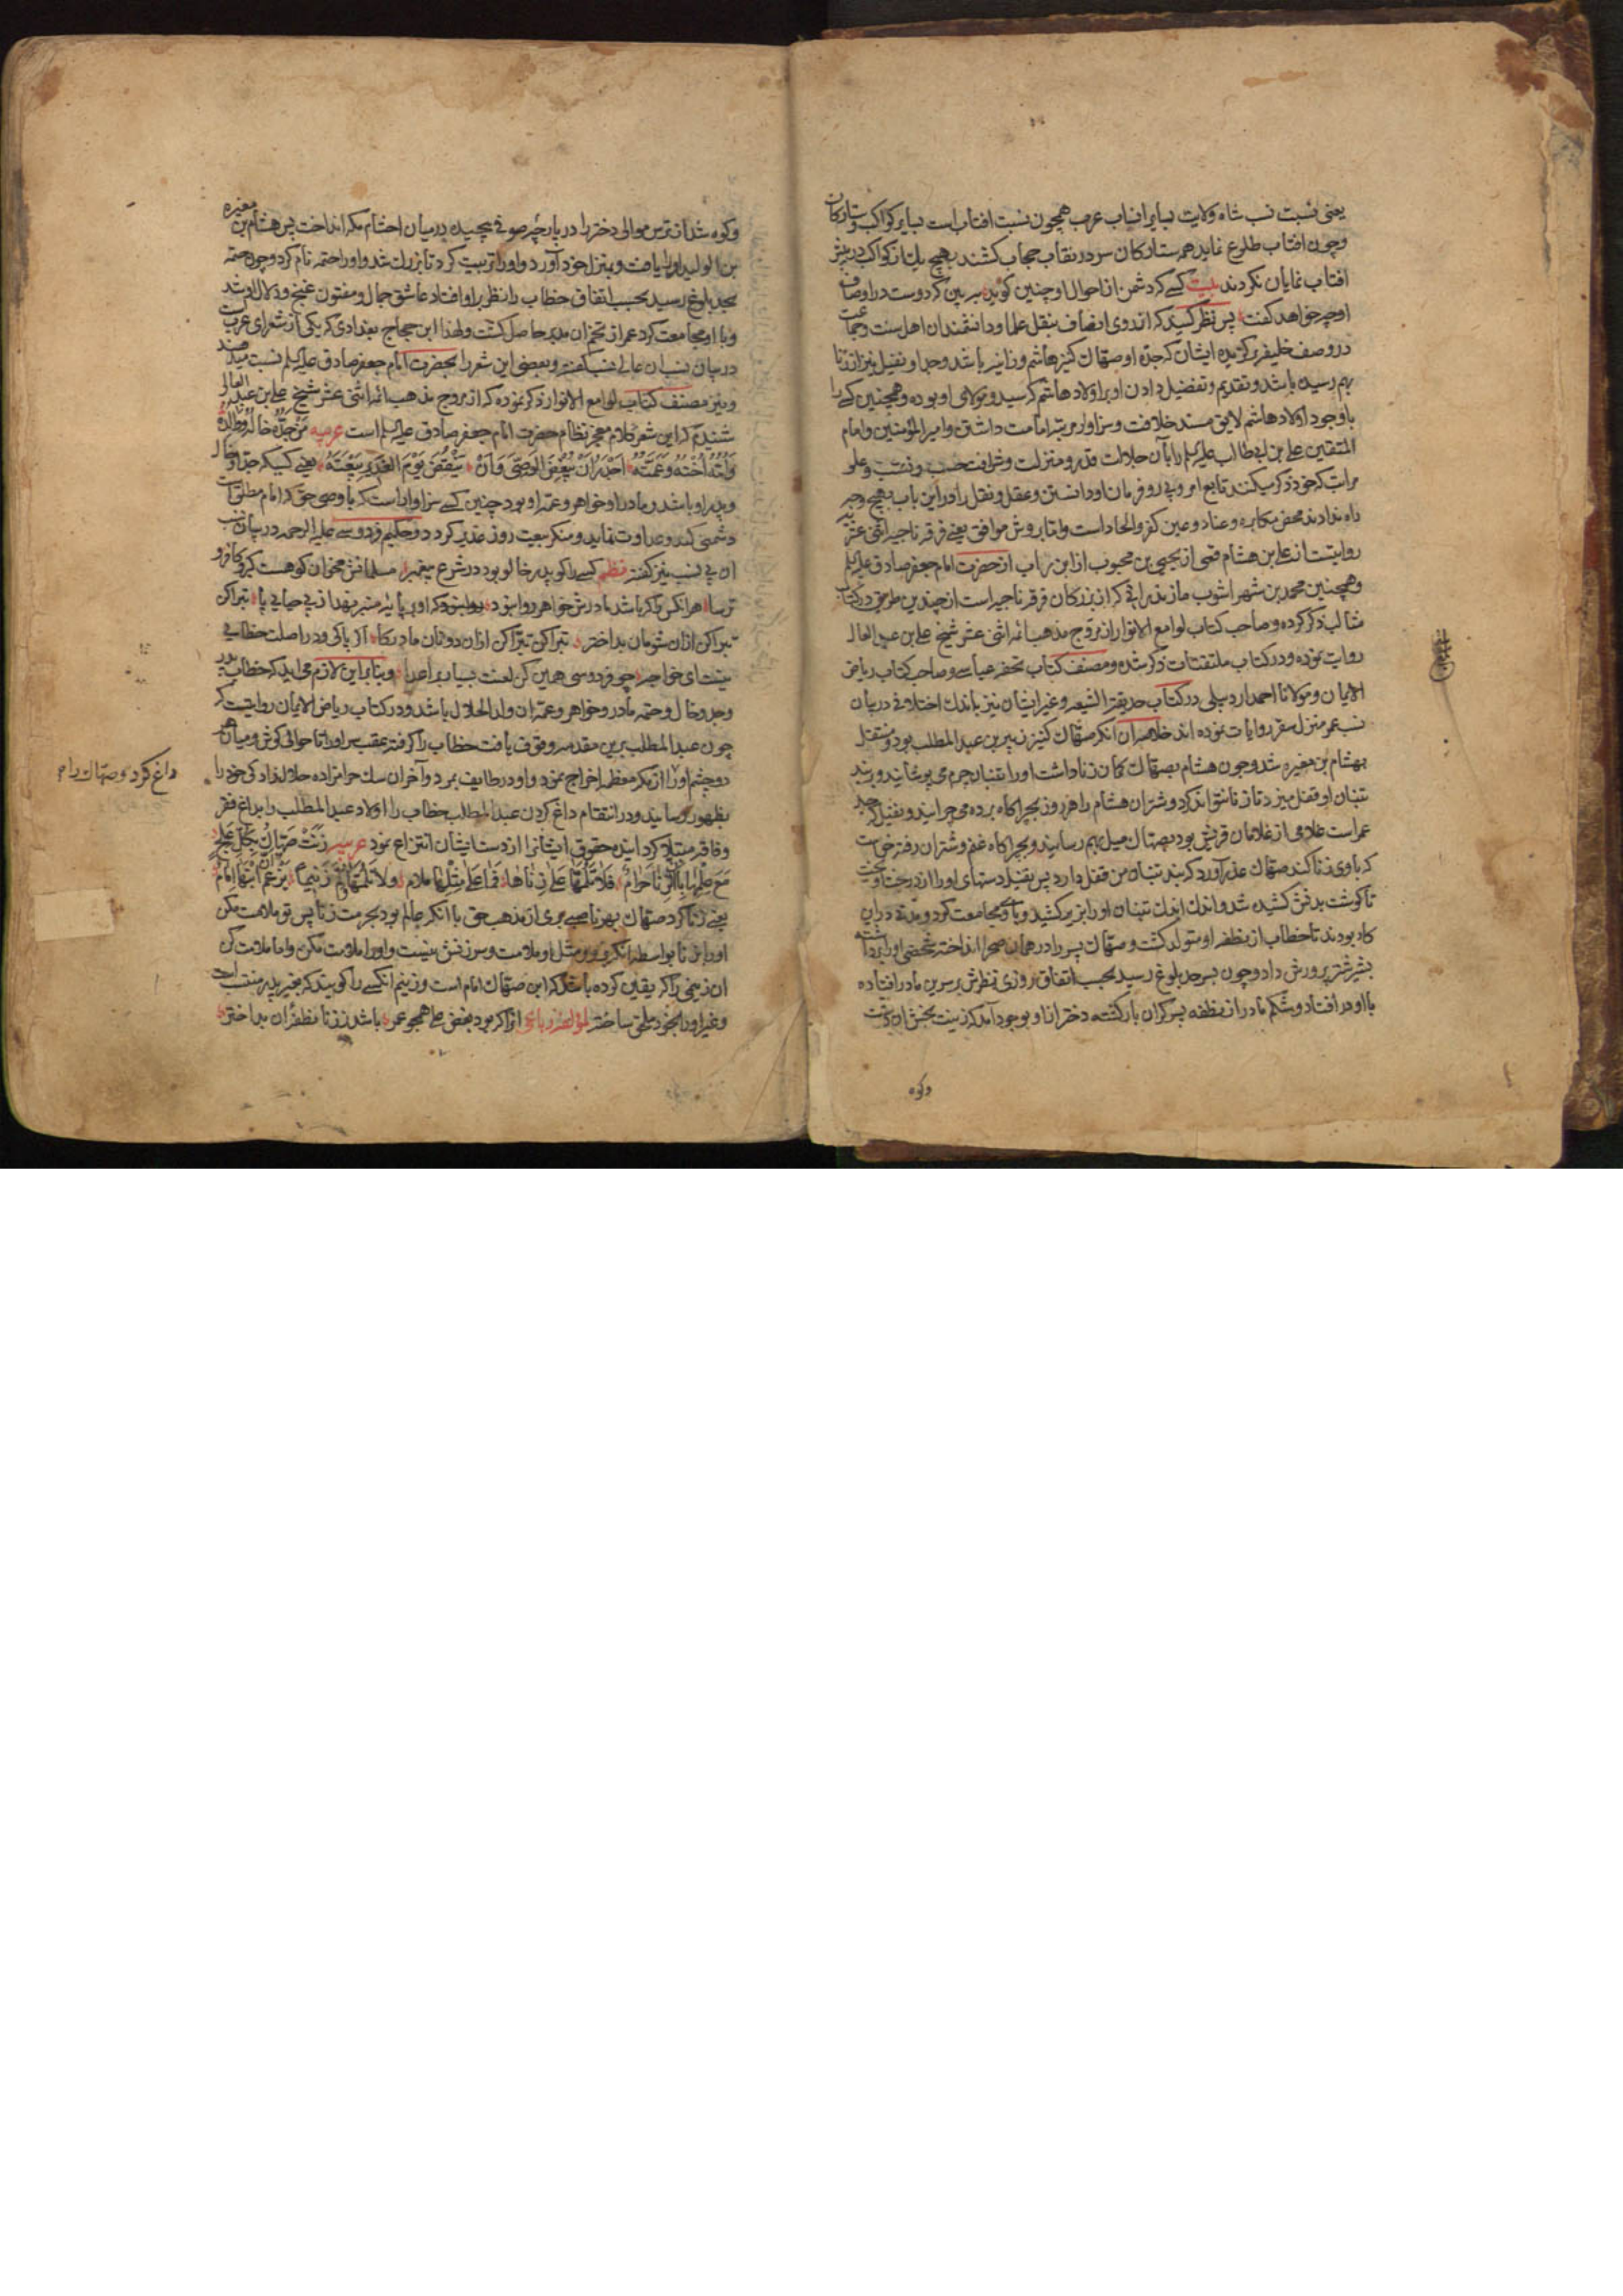 یعنی نسبت نسب شاه ولایت بسایر انساب عرب همچون نسبت افتاب است بسایر کواکب وستارکان
وچون افتاب طلوع نماید همه ستارکان سر در نقاب حجاب کشند بهیچ یك از کواکب در پیش
افتاب نمایان نکردند بیت کسے که دشمن از احوال او چنین کوید ببین که دوست در اوصاف
او چه خواهد کفت پس نظر کنید که از روی انصاف بنقل علما ودانشمندان اهل سنت وجماعت
در وصف خلیفه برکزیده ایشان که جدّه او صهاك کنیز هاشم وزانیه باشد وجد او نفیل نیز از زنا
بهم رسیده باشد وتقدیم وتفضیل دادن او بر اولاد هاشم که سید ومولای او بوده وهمچنین کسے را
با وجود اولاد هاشم لایق مسند خلافت وسزاوار مرتبه امامت داشتن وامیر المؤمنین وامام
المتقین علے بن ابے طالب علیه السلم را با آن جلالت قدر ومنزلت وشرافت حسب ونسب وعلو
مراتب که خود ذکر میکنند تابع امر وپی رو فرمان او دانستن وعقل ونقل را در این باب بهیچ وجه
راه ندادند محض مکابره وعناد وعین کفر والحاد است واما بروش موافق یعنے فرقه ناجیه اثنی عشریه
روایتست از علے بن هشام قمی از یحیی بن محبوب از ابن زیاب از حضرت امام جعفر صادق علیه السلم
وهمچنین محمد بن شهر اشوب مازندرانی که از بزرکان فرقه ناجیه است از چندین طریق در کتاب
مثالب ذکر کرده وصاحب کتاب لوامع الانوار از مروّج مذهب ائمه اثنی عشر شیخ علے بن عبد العالے
روایت نموده ودر کتاب ملتقتات ذکر شده ومصنف کتاب تحفه عباسے وصاحب کتاب ریاض
الایمان ومولانا احمد اردبیلی در کتاب حدیقة الشیعه وغیر ایشان نیز باندك اختلافی در بیان
نسب عمر منزل سقر روایات نموده اند خلاصه ان انکه صهاك کنیز زبیر بن عبد المطلب بود ومنتقل
بهشام بن مغیره شد وچون هشام بصهاك کمان زنا داشت او را تنبان چرم می پوشانید وبر بند
تنبان او قفل میزد تا زنا نتواند کرد وشتران هشام را هر روز بچراکاه برده می چرانید ونفیل که جد
عمر است غلامی از غلامان قریش بود بصهاك میل بهم رسانید وبچراکاه غنم وشتران رفته خواست
که با وی زنا کند صهاك عذر آورد که بند تنبان من قفل دارد پس نفیل دستهای او را از درخت اویخت
تا کوشت بدنش کشیده شد واندك اندك تنبان او را بزیر کشید وبا وی مجامعت کرد ومدتے در این
کار بودند تا خطاب از نطفه او متولد کشت وصهاك پسر را در همان صحرا انداخته شخصی او را برداشته
بشیر شتر پرورش داد وچون بسر حد بلوغ رسید بحسب اتفاق روزی نظرش بر سرین مادر افتاده
با او در افتاد وشکم مادر از نطفه پسر کران بار کشته دختر از او بوجود آمد که زینت بخش ان دشت
وکوه
وکوه شد از ترس موالی دختر را در پارچه صوفے پیچیده در میان احشام مکه انداخت پس هشام بن مغیره
بن الولید او را یافت وبمنزل خود آورد واو را تربیت کرد تا بزرك شد واو را حتمه نام کرد وچون حتمه
بحد بلوغ رسید بحسب اتفاق خطاب را نظر بر او افتاد عاشق جمال ومفتون غنج ودلال او شد
وبا او مجامعت کرد عمر از تخم ان مدبر حاصل کشت ولهذا ابن حجاج بغدادی که یکی از شعرای عربست
در بیان نسب ان عالے نسب کفته وبعضی این شعر را بحضرت امام جعفر صادق علیه السلم نسبت میدهند
ونیز مصنف کتاب لوامع الانوار ذکر نموده که از مروج مذهب ائمه اثنی عشر شیخ علے بن عبد العالے
شنیدم که این شعر کلام معجز نظام حضرت امام جعفر صادق علیه السلم است عربیه مَنْ جَدُّهُ خالُهُ وَوالِدُهُ
وَاُمُّهُ اُخْتُهُ وَعَمَّتُهُ اَجْدَرُ اَنْ یُبْغِضَ الوَصِیَّ وَاَنْ یَنْقُضَ یَوْمَ الغَدیرِ بَیْعَتَهُ یعنے کسیکه جدّ او خال
وپدر او باشد ومادر او خواهر وعمه او بود چنین کسے سزاوار است که با وصی حق که امام مطلق است
دشمنی کند وعداوت نماید ومنکر بیعت روز غدیر کردد وحکیم فردوسے علیه الرحمه در بیان نسب
ان بے نسب نیز کفته نظم کسے را کو پدر خالو بود در شرع پیغمبر مسلمانش مخوان کو هست کبر وکافر و
ترسا هر انکس را که باشد مادرش خواهر روا نبود که او بر پایه منبر نهد از بے حیایے پا تبرا کن
تبرا کن از ان شومان بد اختر تبرا کن تبرا کن از ان دونان مادر کا اکر پاکی ودر اصلت خطایے
نیست ای خواجه چو فردوسی همین کن لعنت بسیار بر اعدا وبنا بر این لازم می اید که خطاب پدر
وجد وخال وحتمه مادر وخواهر وعمه ان ولد الحلال باشد ودر کتاب ریاض الایمان روایتست که
چون عبد المطلب برین مقدمه وقوف یافت خطاب را کرفته عقب سر او را تا حوالی کوش ومیان هر
دو چشم او را از مکه معظمه اخراج نمود واو در طایف بمرد وآخر ان سك حرامزاده حلالزادکی خود را
بظهور رسانید ودر انتقام داغ کردن عبد المطلب خطاب را اولاد عبد المطلب را بداغ فقر
وفاقه مبتلا کرد انید وحقوق ایشانرا از دست ایشان انتزاع نمود عربیه زَنَتْ صَهّاكُ بِکُلِّ عِلْجٍ
مَعَ عِلْمِها بِاَنَّ الزِّنا حَرامٌ فَلا تَلُمْها عَلی زِناها فَما عَلی مِثْلِها مَلام وَلا تَلُمْها وَلُمْ زَنیماً یَزْعُمُ اَنَّ ابْنَها اِمامٌ
یعنے زنا کرد صهاك بهر ناصبے بری از مذهب حق با انکه عالم بود بحرمت زنا پس تو ملامت مکن
ان زنیمی را که یقین کرده باشد که ابن صهاك امام است وزنیم انکسے را کویند که بغیر پدر منتسب است
داغ کرد وصهاك را م